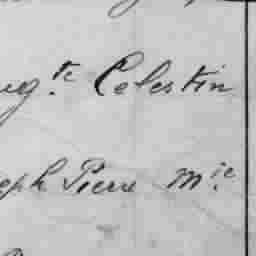 ug.te Celestin
eph Pierre M.ie